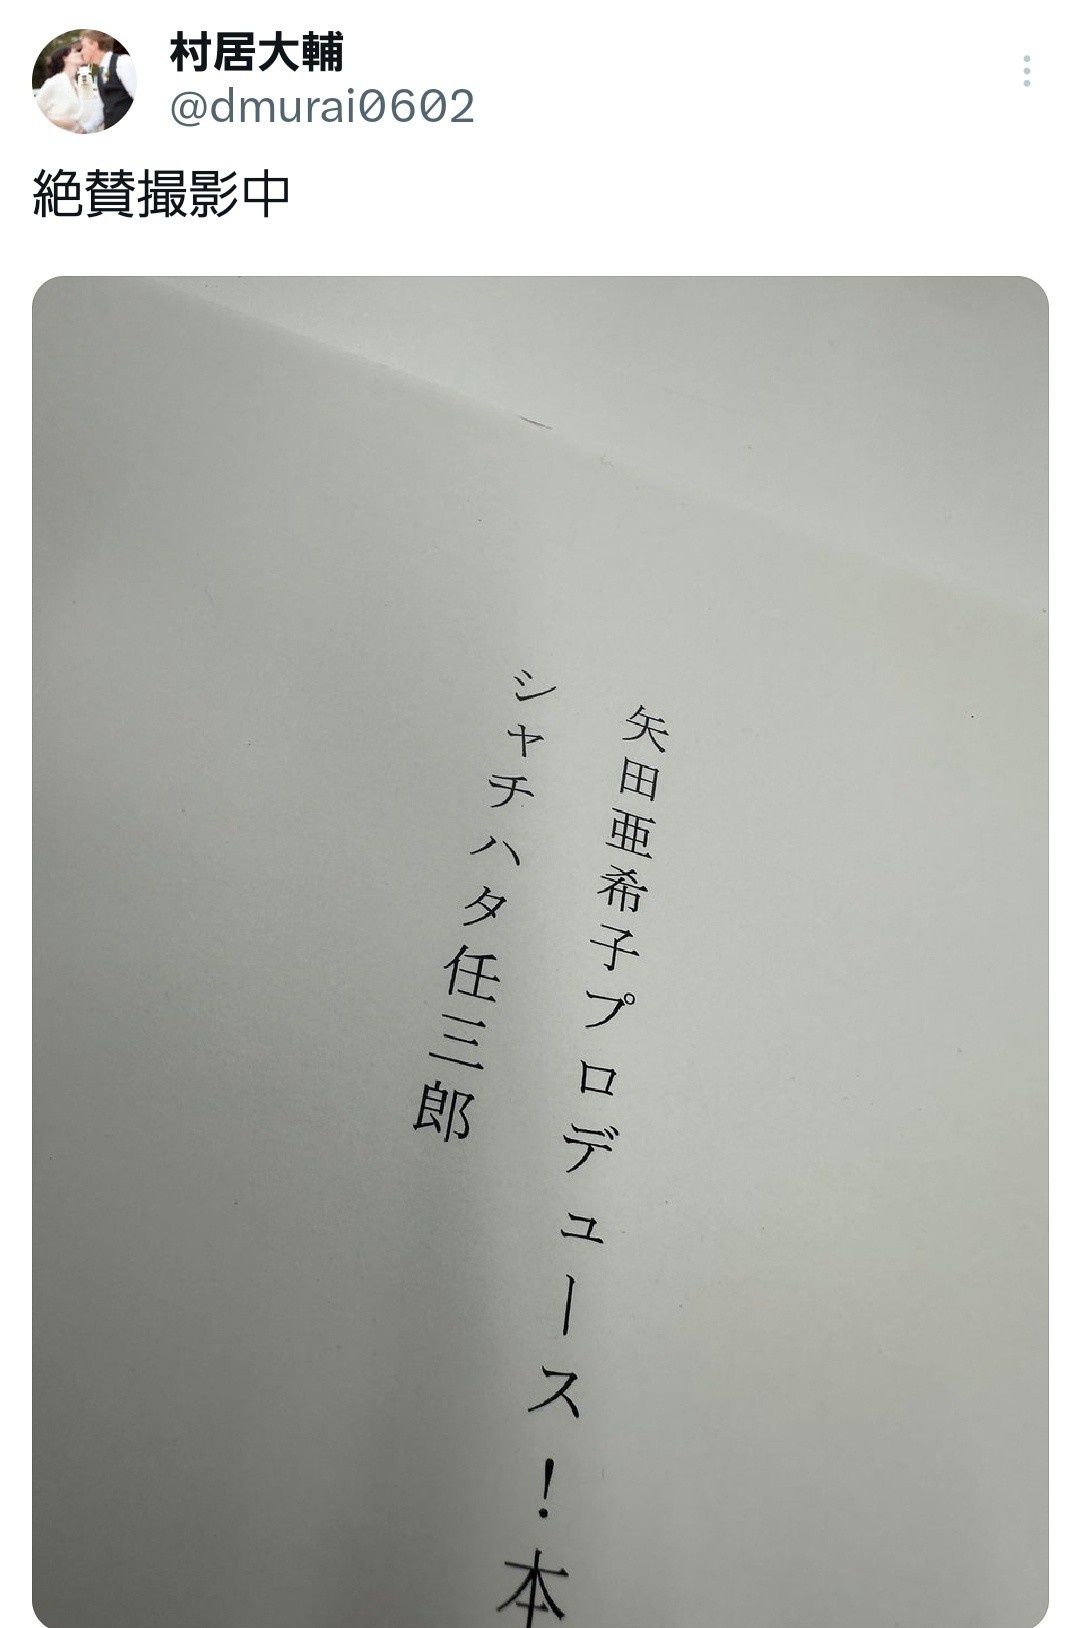 村居大輔
@dmurai0602
絶賛撮影中
矢田亜希子プロデュース!本
シャチハタ任三郎